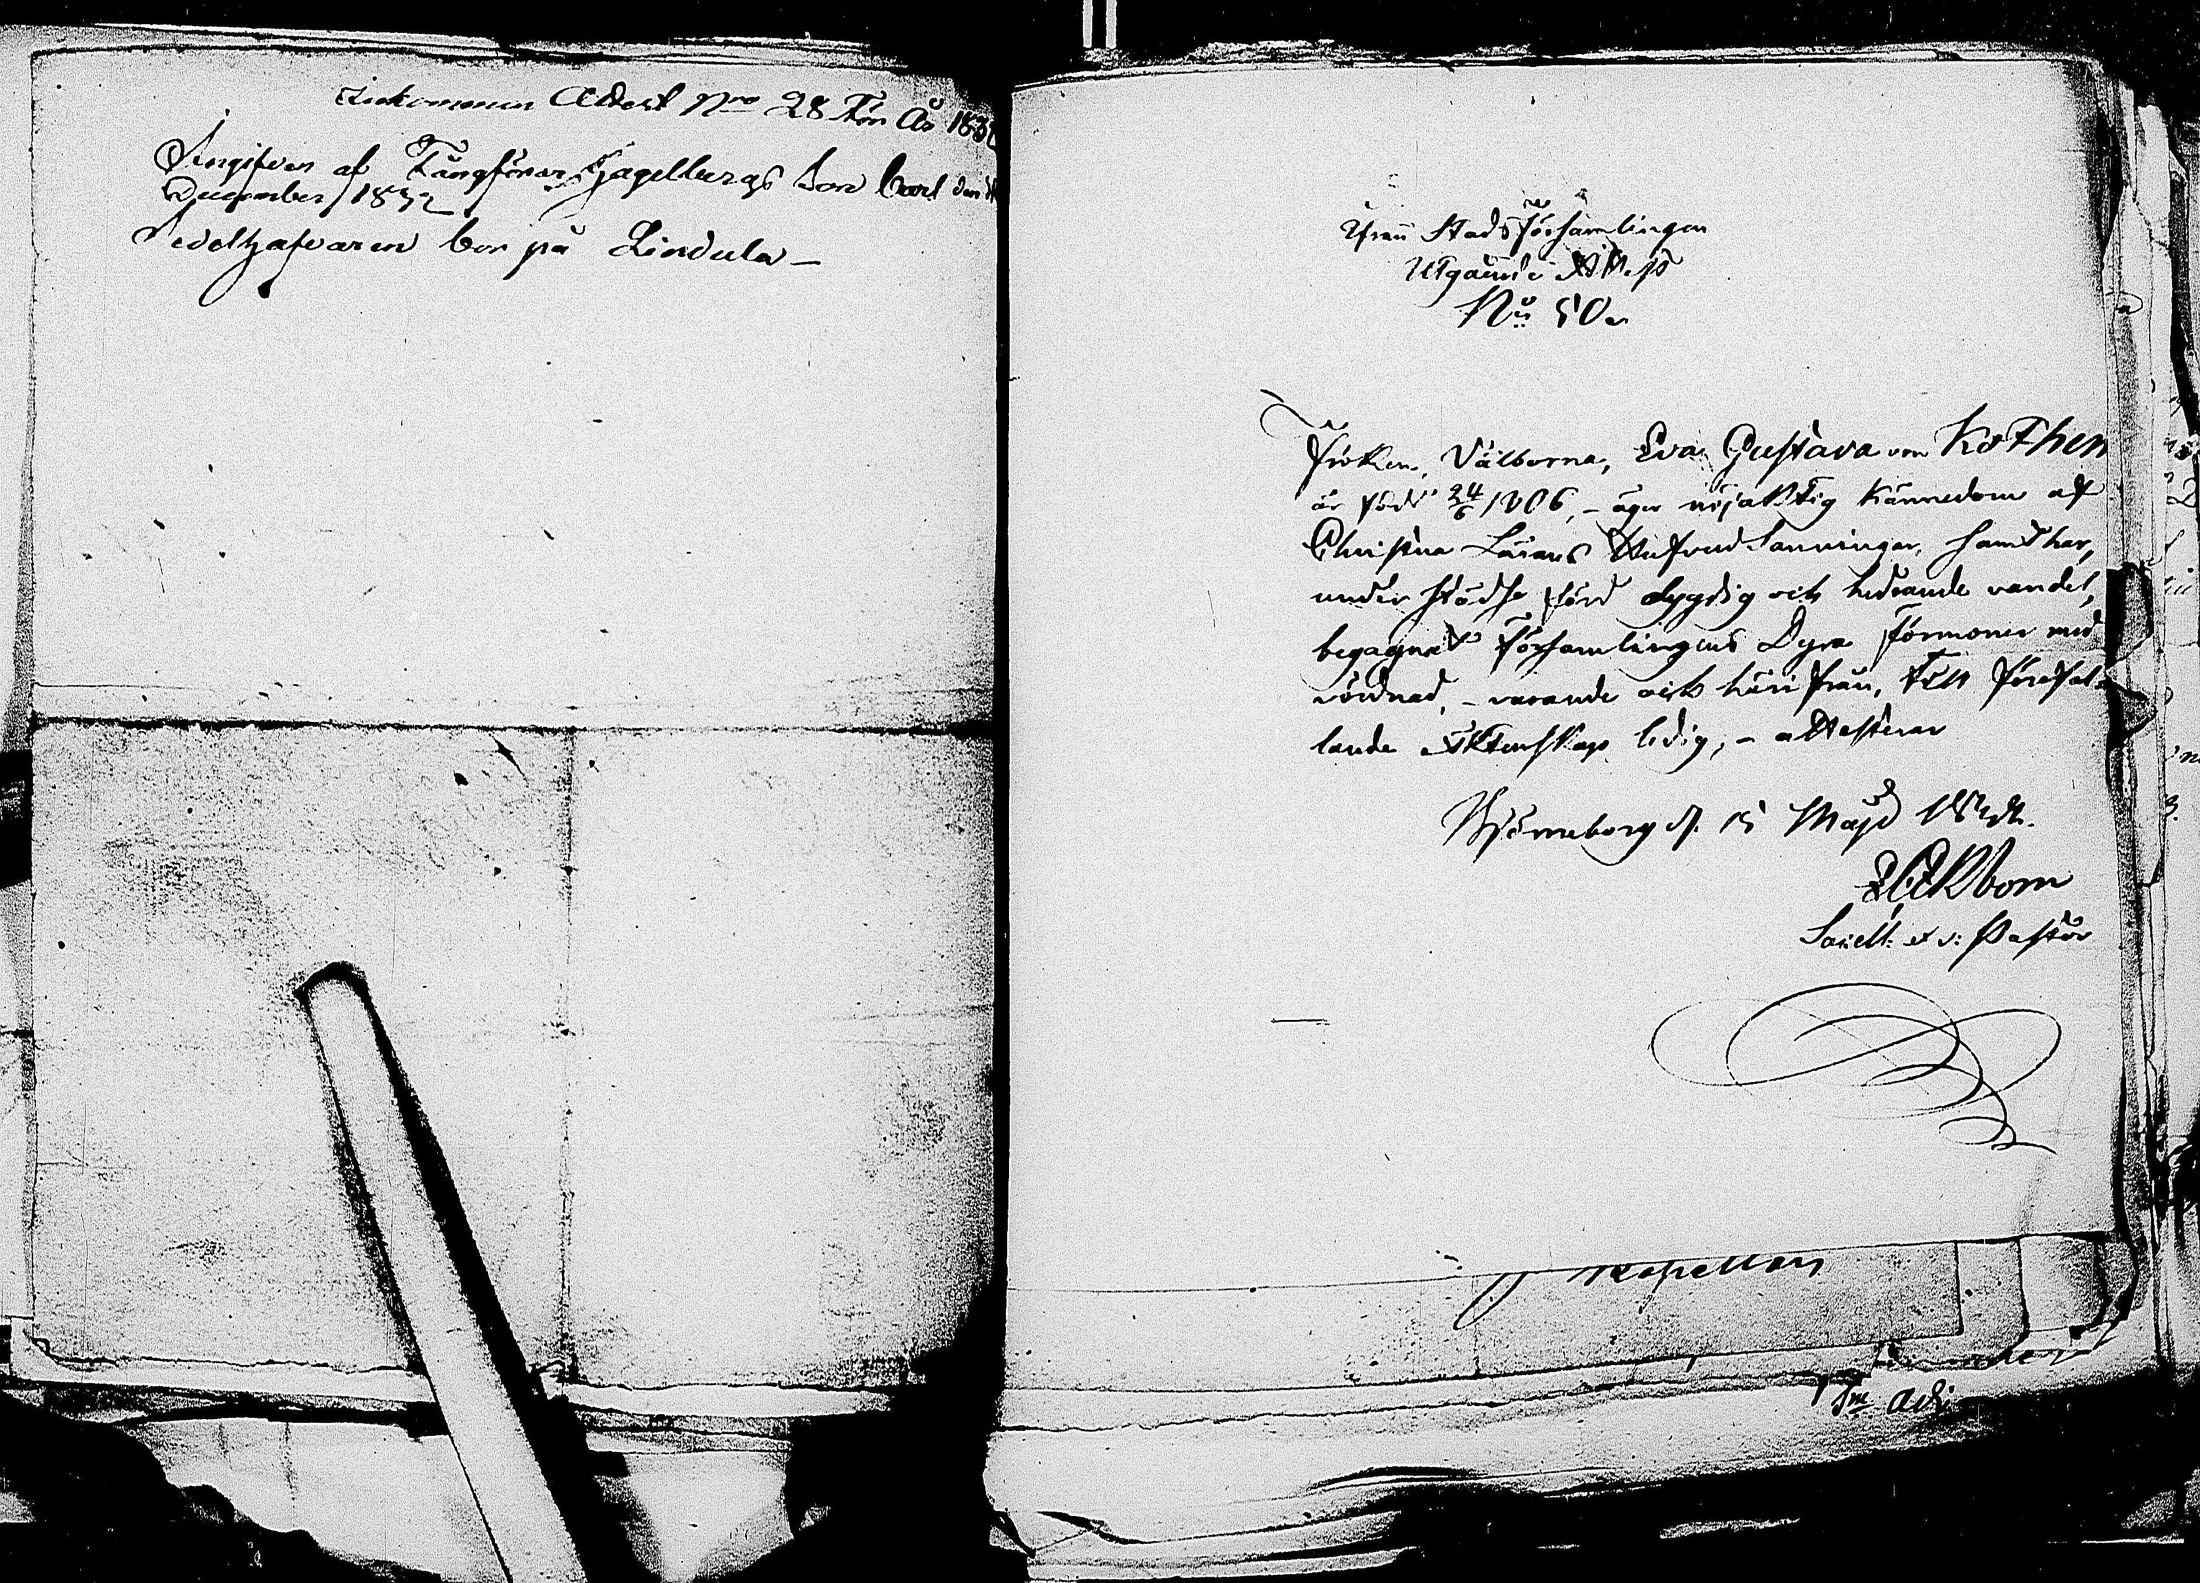 Inkommen Attest Nro 28 För År 183
Angifven af Fångförar Hagelbergs Son Carl den
December 1832
Sedelhafvaren bor på Lindula –
Ifrån Stads Församlingen
Utgående Attest
No 50.
Fröken, Välborna, Eva Gustava von Kothen
är född 24/6 1806, – äger nöjaktig kännedom af
Christna Lärans Sanningar, samt har,
under städse förd dygdig och hedrande vandel,
begagnat Församlingens Dyra förmoner med
vördnad, – varande ock härifrån, till förefal-
lande Äktenskap ledig, – attesterar
Björneborg d. 15 Maji
Sacell: et v: Pastor
Kapellan